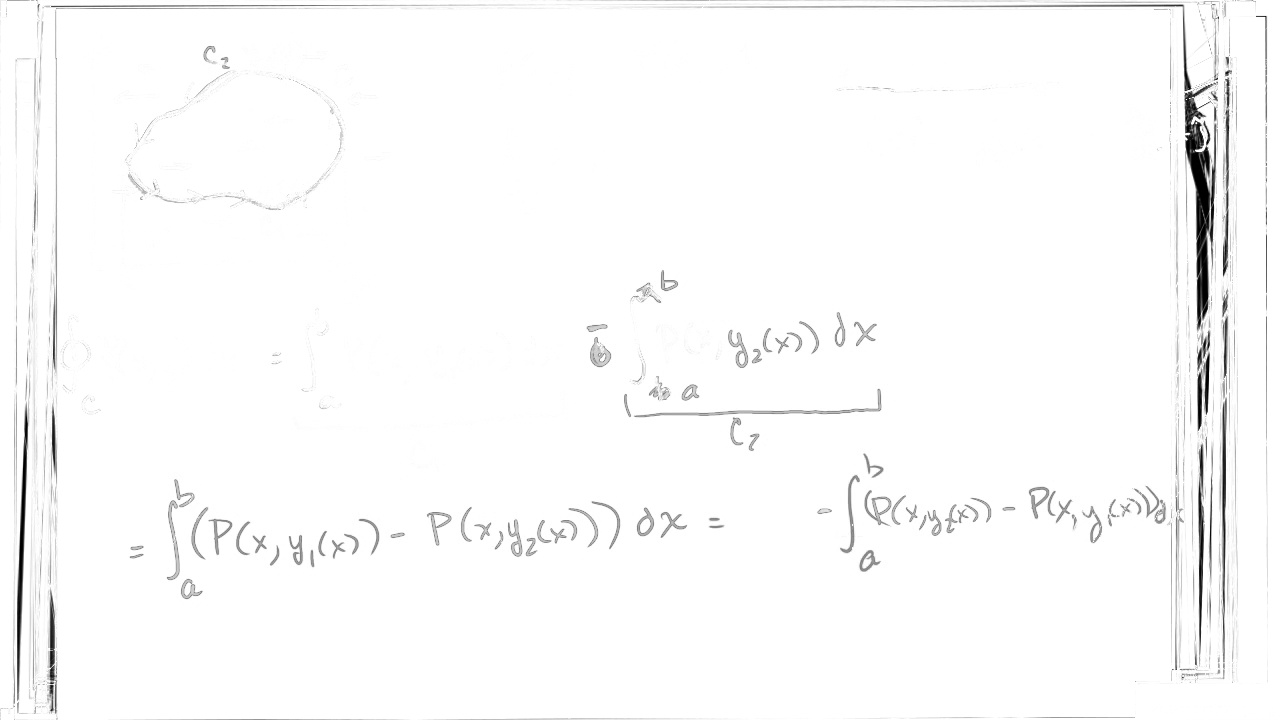 C₂
= ∫ₐ − ∫ₐᵇ P(x, y₂(x)) dx
C
C₂
= ∫ₐᵇ (P(x, y₁(x)) - P(x, y₂(x))) dx = - ∫ₐᵇ (P(x, y₂(x)) - P(x, y₁(x))) dx